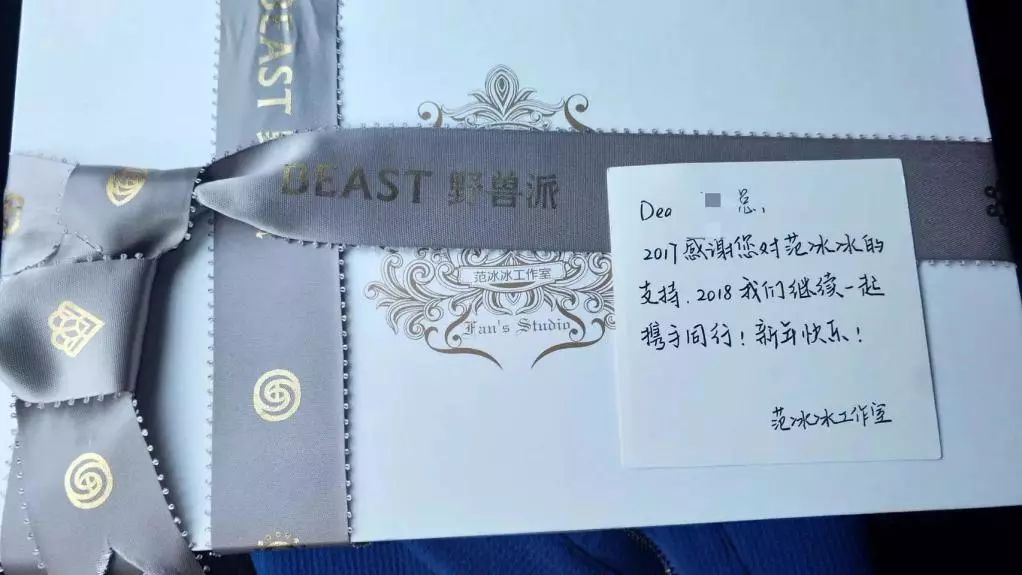 BEAST
BEAST 野兽派
范冰冰工作室
Fan's Studio
Dea 总,
2017感谢您对范冰冰的
支持.2018我们继续一起
携手同行!新年快乐!
范冰冰工作室